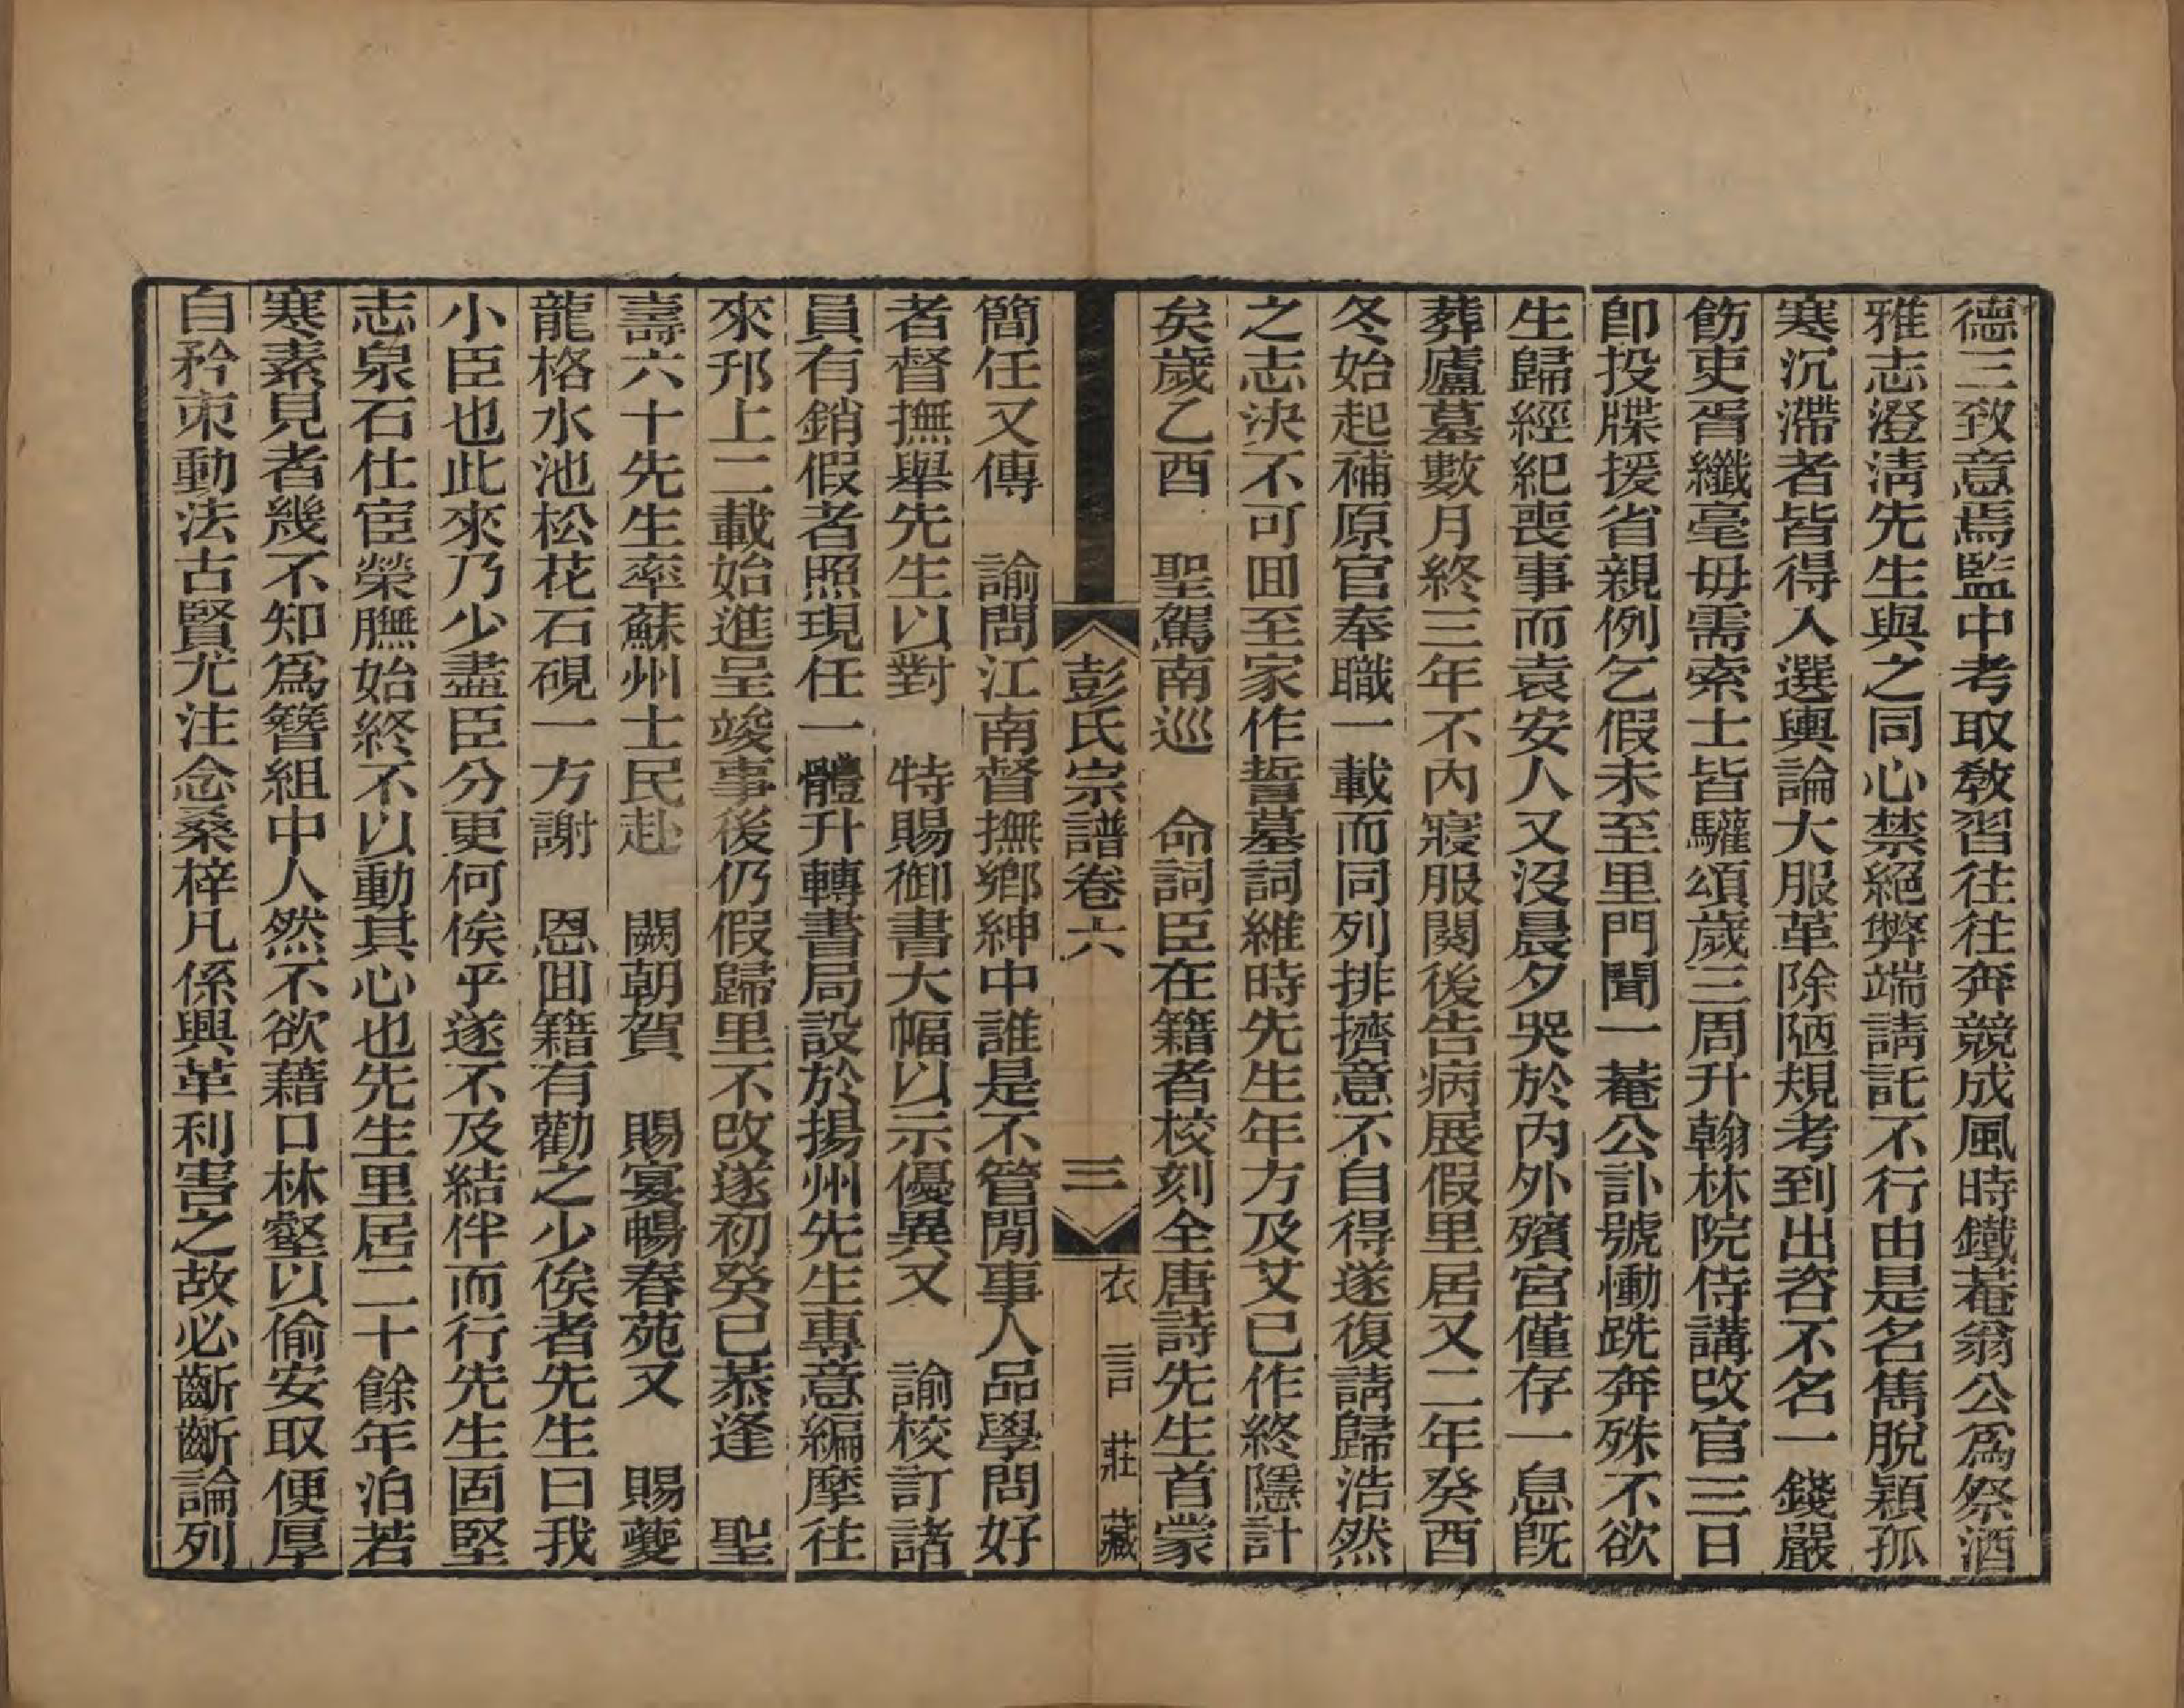 德三致意焉監中考取敎習往往奔競成風時鐵菴翁公爲祭酒
雅志澄淸先生與之同心禁絕弊端請託不行由是名儁脫穎孤
寒沉滯者皆得入選輿論大服革除陋規考到出咨不名一錢嚴
飭吏胥纖毫毋需索士皆驩頌歲三周升翰林院侍講改官三日
卽投牒援省親例乞假未至里門聞一菴公訃號慟跣奔殊不欲
生歸經紀喪事而袁安人又沒晨夕哭於內外殯宮僅存一息旣
葬廬墓數月終三年不內寢服闋後告病展假里居又二年癸酉
冬始起補原官奉職一載而同列排擠意不自得遂復請歸浩然
之志決不可囬至家作誓墓詞維時先生年方及艾已作終隱計
矣歲乙酉　聖駕南巡　命詞臣在籍者校刻全唐詩先生首蒙
彭氏宗譜卷六　三　衣言莊藏
簡任又傳　諭問江南督撫鄉紳中誰是不管閒事人品學問好
者督撫舉先生以對　特賜御書大幅以示優異又　諭校訂諸
員有銷假者照現任一體升轉書局設於揚州先生專意編摩往
來邗上二載始進呈竣事後仍假歸里不改遂初癸巳恭逢　聖
壽六十先生率蘇州士民赴　闕朝賀　賜宴暢春苑又　賜夔
龍格水池松花石硯一方謝　恩囬籍有勸之少俟者先生曰我
小臣也此來乃少盡臣分更何俟乎遂不及結伴而行先生固堅
志泉石仕宦榮膴始終不以動其心也先生里居二十餘年泊若
寒素見者幾不知爲簪組中人然不欲藉口林壑以偷安取便厚
自矜朿動法古賢尤注念桑梓凡係興革利害之故必齗齗論列